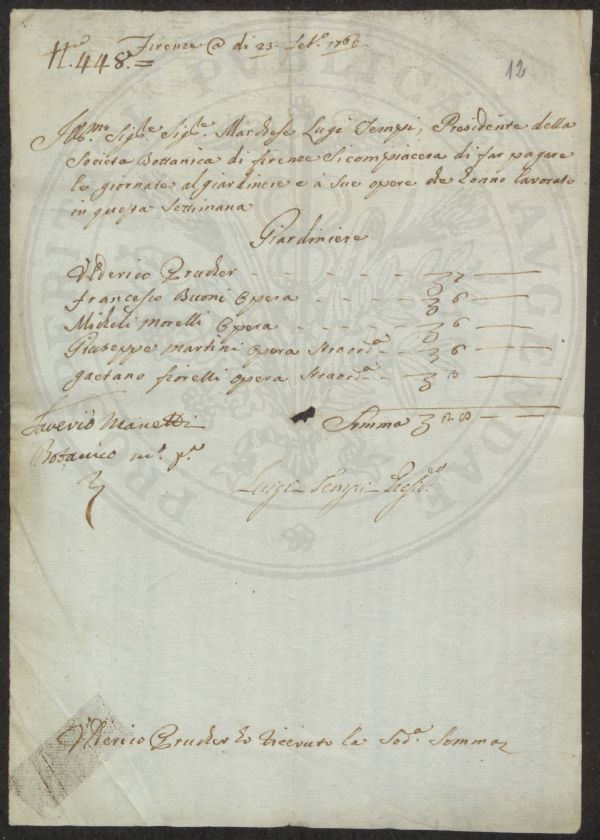 N.º 448 = Firenze @ di 23. feb.º 1766
12
Ill.mo Sig.re Sig.re Marchese Luigi Tempi, Presidente della
Societa Bottanica di firenze Si compiacera di far pagare
le giornate al giardiniere e a sue opere che hanno lavorato
in questa Settimana
Giardiniere
Ulderico Prucher - - - - - - 7
Francesco Buoni Opera - - - - 6
Micheli Morelli Opera - - - - 6
Giuseppe Martini opera straord.ª - - 6
Gaetano fiorelli opera straord.ª - - 3
Saverio Manetti Somma 28
Botanico m.º p.ª
Luigi Tempi Presid.e
Ulderico Prucher ho ricevuto la Sod.ª Somma
PROSPERITATI PUBLICAE AUGENDAE